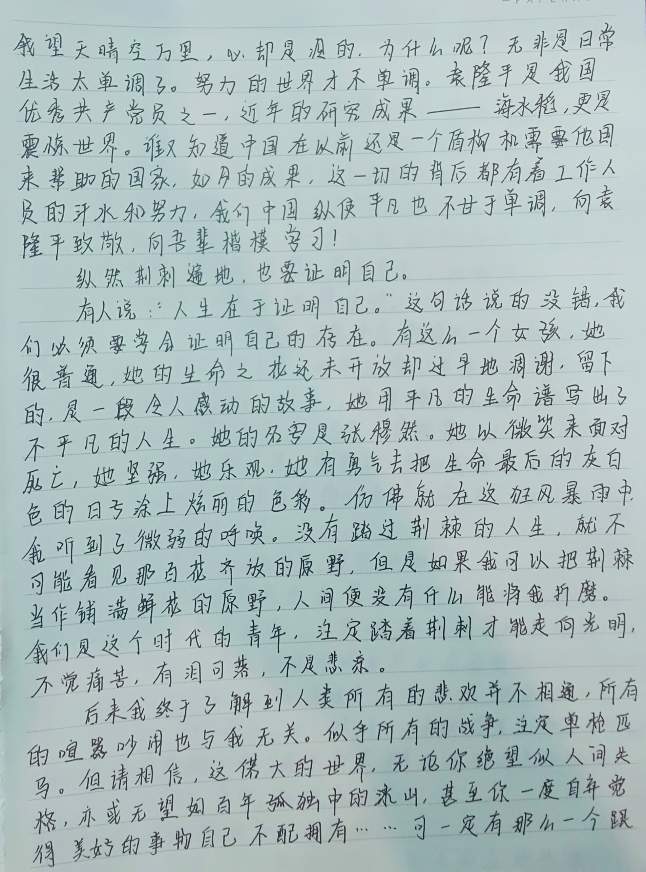 我望天晴空万里，心却是湿的。为什么呢？无非是日常
生活太单调了。努力的世界才不单调。袁隆平是我国
优秀共产党员之一，近年的研究成果——海水稻，更是
震惊世界。谁又知道中国在以前还是一个盾构机需要他国
来帮助的国家，如今的成果，这一切的背后都有着工作人
员的汗水和努力，我们中国纵使平凡也不甘于单调，向袁
隆平致敬，向吾辈楷模学习！
纵然荆刺遍地，也要证明自己。
有人说：“人生在于证明自己。”这句话说的没错，我
们必须要学会证明自己的存在。有这么一个女孩，她
很普通，她的生命之花还未开放却过早地凋谢，留下
的，是一段令人感动的故事，她用平凡的生命谱写出了
不平凡的人生。她的名字是张穆然。她以微笑来面对
死亡，她坚强，她乐观，她有勇气去把生命最后的灰白
色的日子涂上炫丽的色彩。仿佛就在这狂风暴雨中，
我听到了微弱的呼唤。没有踏过荆棘的人生，就不
可能看见那百花齐放的原野，但是如果我可以把荆棘
当作铺满鲜花的原野，人间便没有什么能将我折磨。
我们是这个时代的青年，注定踏着荆刺才能走向光明，
不觉痛苦，有泪可落，不是悲哀。
后来我终于了解到人类所有的悲欢并不相通，所有
的喧嚣吵闹也与我无关。似乎所有的战争，注定单枪匹
马。但请相信，这偌大的世界，无论你绝望似人间失
格，亦或无望如百年孤独中的冰山，甚至你一度自弃觉
得美好的事物自己不配拥有……可一定有那么一个跟